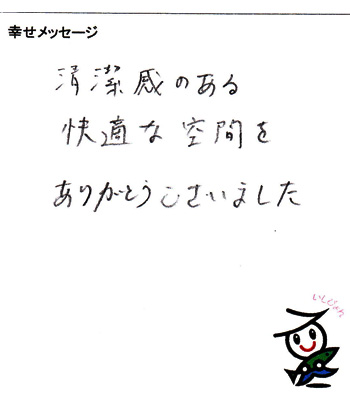 幸せメッセージ
清潔感のある
快適な空間を
ありがとうございました